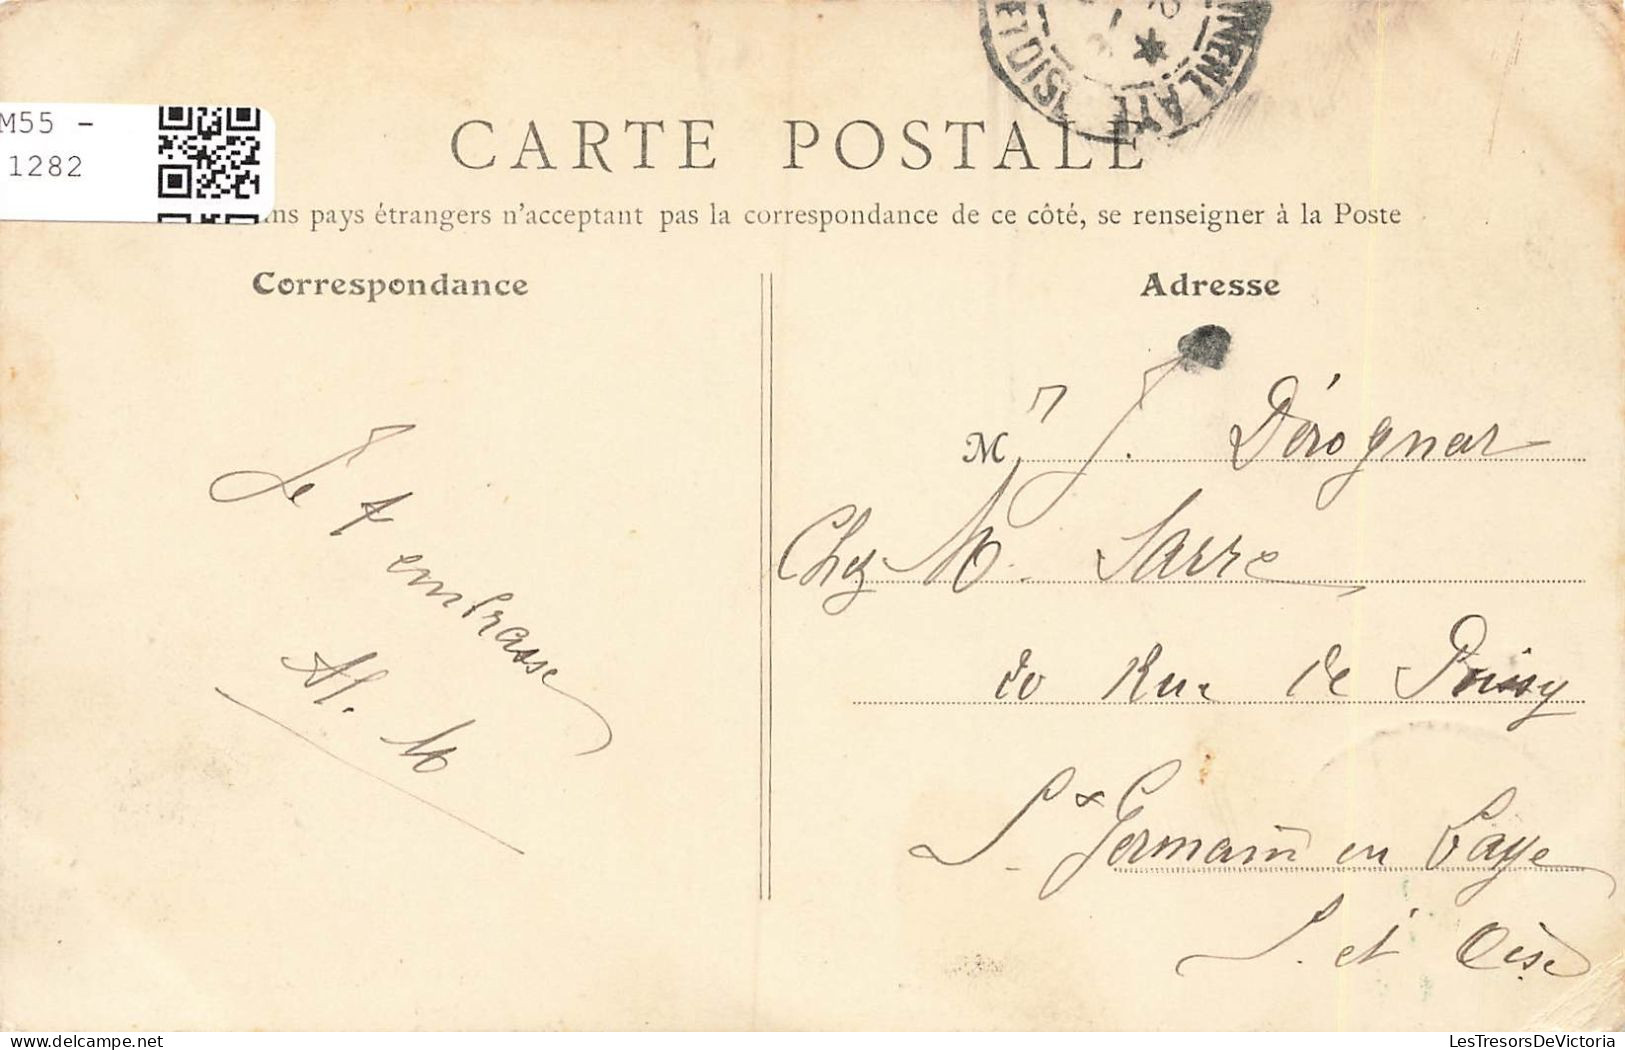 M55 -
1282
CARTE POSTALE
pays étrangers n'acceptant pas la correspondance de ce côté, se renseigner à la Poste
Correspondance
Adresse
Je t embrasse
Al. M
M J. Dérognat
Chez M. Sarre
Rue de Poissy
St Germain en Laye
S. et Oise
LesTresorsDeVictoria
www.delcampe.net